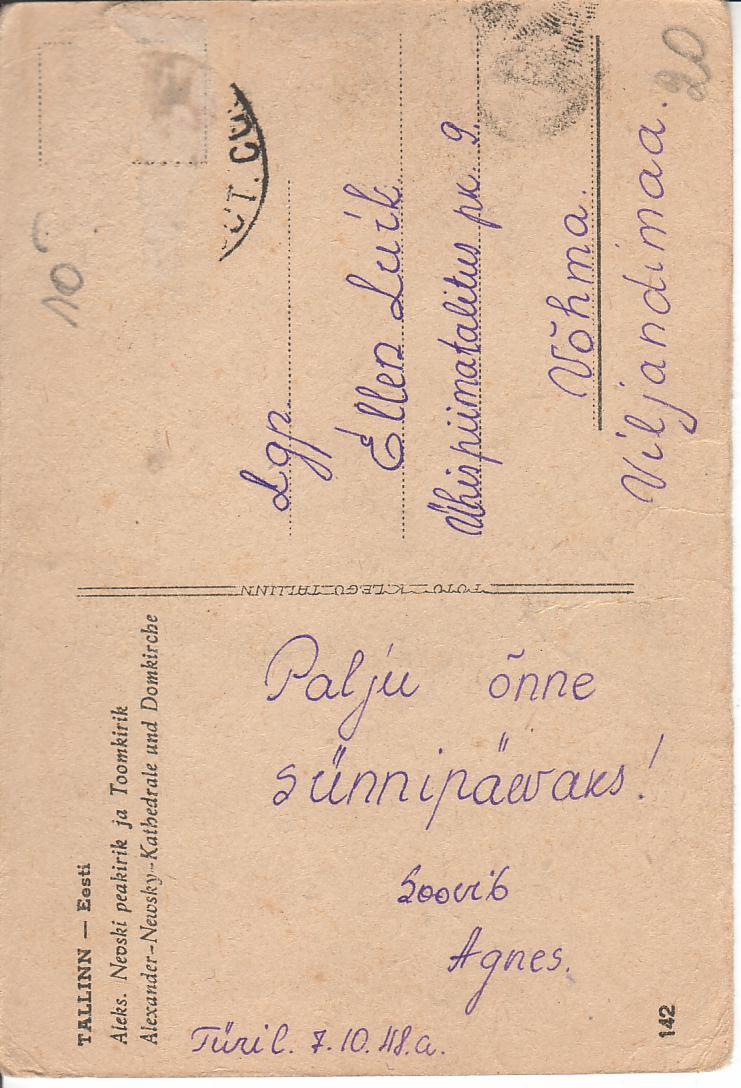 TALLINN — Eesti
Aleks. Nevski peakirik ja Toomkirik
Alexander-Newsky-Kathedrale und Domkirche
Palju õnne
sünnipäevaks!
Soovib
Agnes.
Türil. 7.10.48.a.
142
FOTO K. LEGU TALLINN
10
Lgp.
Ellen Luik
Ühispiimatalitus pk. 9.
Võhma.
Viljandimaa.
20